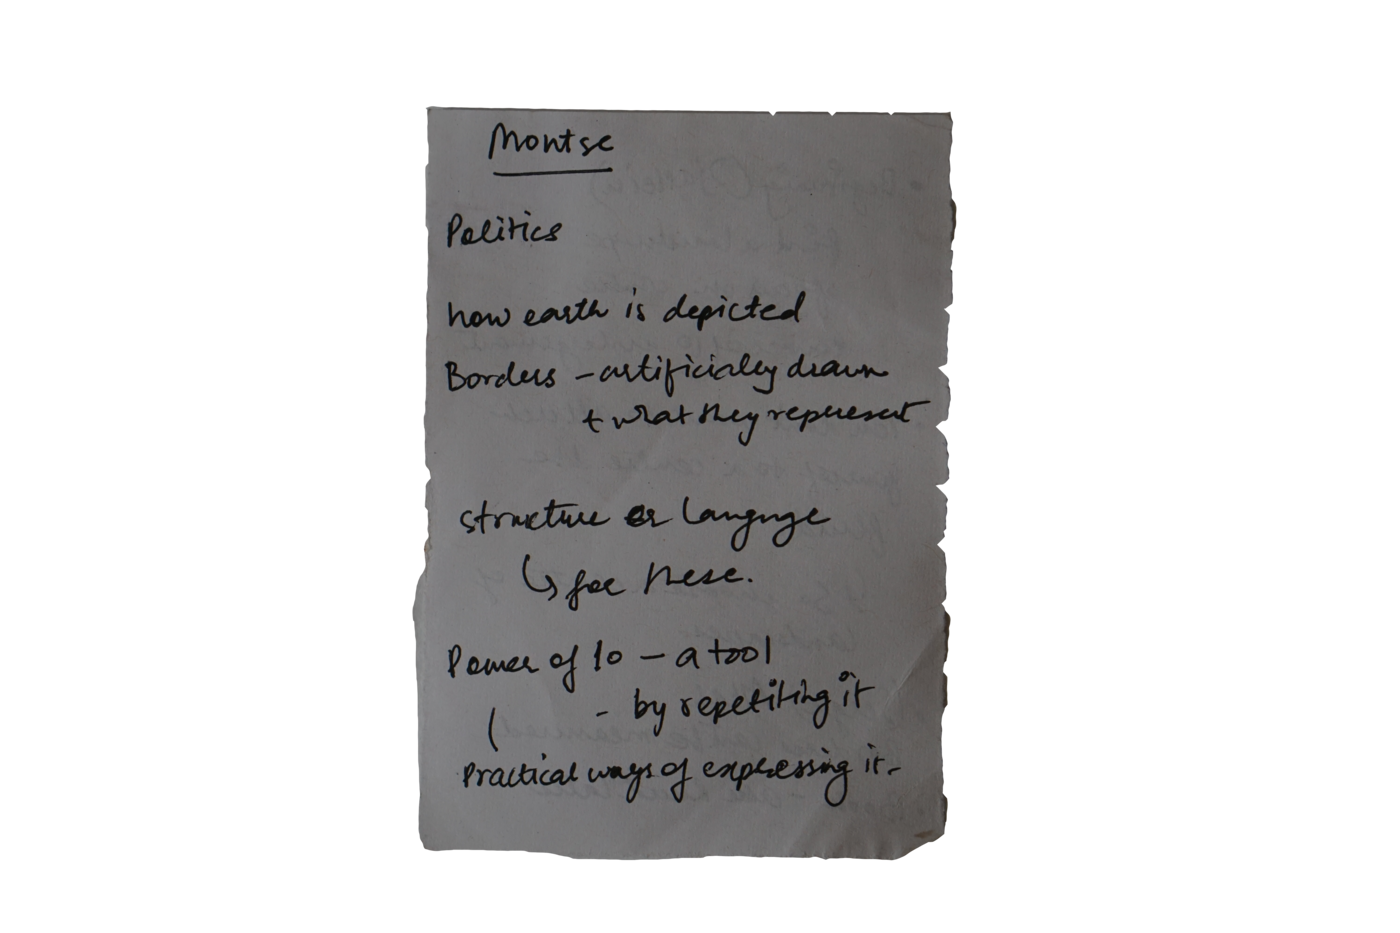 Montse
Politics
how earth is depicted
Borders - artificially drawn
+ what they represent
structure or languge
↳ for these.
Power of 10 - a tool
- by repetiting it
Practical ways of expressing it-